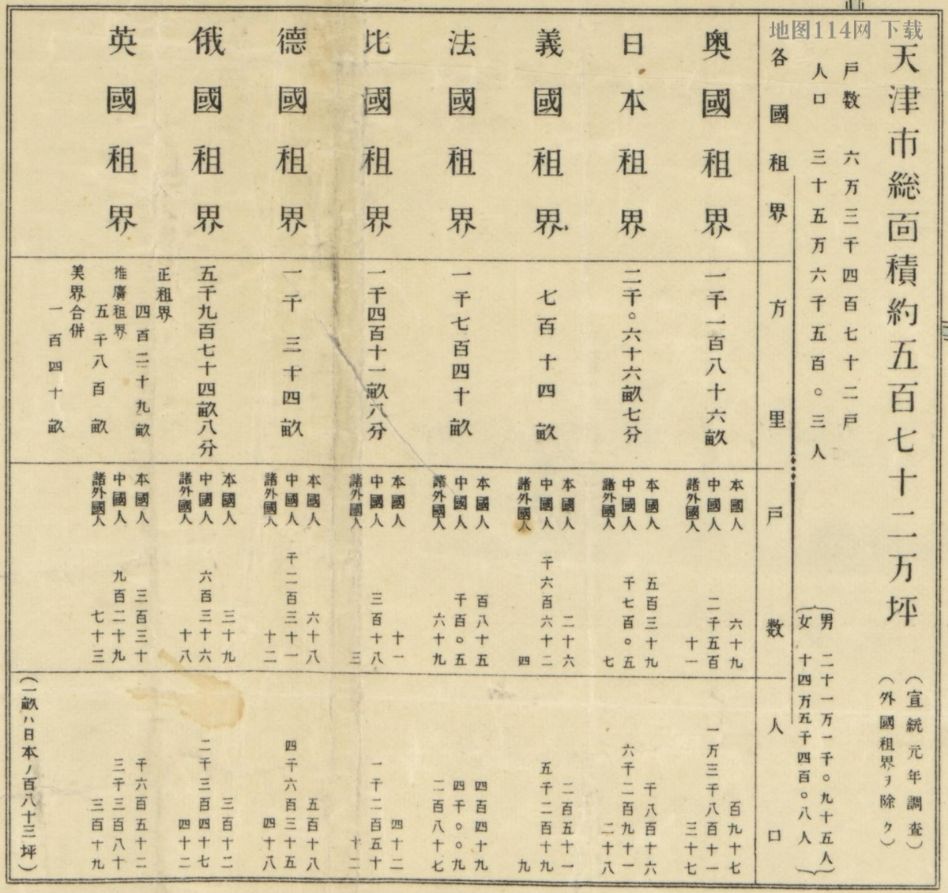 地图114网 下载
天津市総面積約五百七十二万坪
（宣統元年調査）
（外國租界ヲ除ク）
戸数 六万三千四百七十二戸
人口 三十五万六千五百〇三人
男 二十一万一千〇九十五人
女 十四万五千四百〇八人
各國租界 方里 戸数 人口
奥國租界
一千一百八十六畝
本國人 六十九
中國人 二千五百
諸外國人 十一
百九十七
一万三千八百十一
三十七
日本租界
二千〇六十六畝七分
本國人 五百三十九
中國人 千七百〇五
諸外國人 七
千八百十六
六千二百九十一
二十八
義國租界
七百十四畝
本國人 二十六
中國人 千六百六十二
諸外國人 四
二百五十一
五千二百十九
九
法國租界
一千七百四十畝
本國人 百八十五
中國人 千百〇五
諸外國人 六十九
四百四十九
四千〇〇九
二百八十七
比國租界
一千四百十一畝八分
本國人 十一
中國人 三百十八
諸外國人 三
四十二
一千二百五十
十二
德國租界
一千三十四畝
本國人 六十八
中國人 千二百三十一
諸外國人 十二
五百十八
四千六百三十五
四十八
俄國租界
五千九百七十四畝八分
本國人 三十九
中國人 六百三十六
諸外國人 十八
三百十二
二千三百四十七
四十二
英國租界
正租界
四百二十九畝
推廣租界
五千八百畝
美界合併
一百四十畝
本國人 三百三十
中國人 九百二十九
諸外國人 七十三
千六百五十二
三千三百八十
三百十九
（一畝ハ日本ノ百八十三坪）